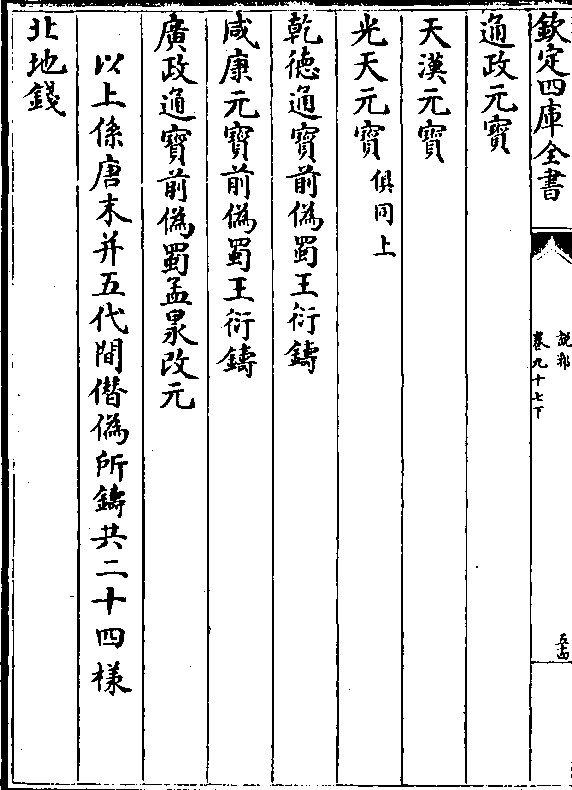 欽定四庫全書
說郛
卷九十七下
五十四
通政元寳
天漢元寳
光天元寳俱同上
乾徳通寳前偽蜀王衍鑄
咸康元寳前偽蜀王衍鑄
廣政通寳前偽蜀孟昶改元
以上係唐末并五代間僭偽所鑄共二十四様
北地錢